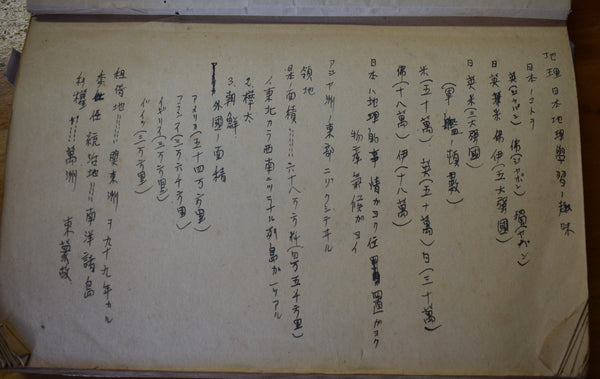 地理 日本地理學習ノ趣味
日本ノコトヲ
英(ジャパン) 佛(ジャポン) 獨(ヤパン)
日英米佛伊(五大强國)
日英米(三大强國)
(軍艦ノ頓數)
米(五十萬) 英(五十萬) 日(三十萬)
佛(十八萬) 伊(十八萬)
日本ハ地理的事情ガヨク位置ガヨク
物產氣候ガヨイ
アジヤ洲ノ東部ニゾクシテキル
領地
 面積 六十八万方粁(四万五千方里)
1、東北カラ西南ニツラナル列島カラナル
2、樺太
3、朝鮮
外國ノ面積
アメリカ(五十四万方里)
フランス(三万六千方里)
イギリス(二万方里)
ドイツ(三万方里)
租借地 関東洲 ヲ九十九年カル
委任統治地 南洋諸島
利權 滿洲
東蒙古